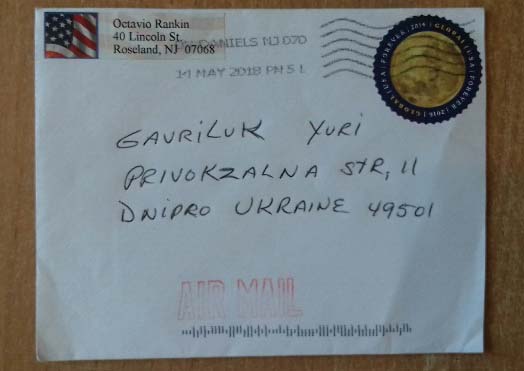 Octavio Rankin
40 Lincoln St.
Roseland, NJ 07068
DANIELS NJ 070
14 MAY 2018 PM 5 L
GLOBAL | USA | FOREVER | 2016 | GLOBAL | USA | FOREVER | 2016 |
GAVRILUK YURI
PRIVOKZALNA STR, 11
DNIPRO UKRAINE 49501
AIR MAIL